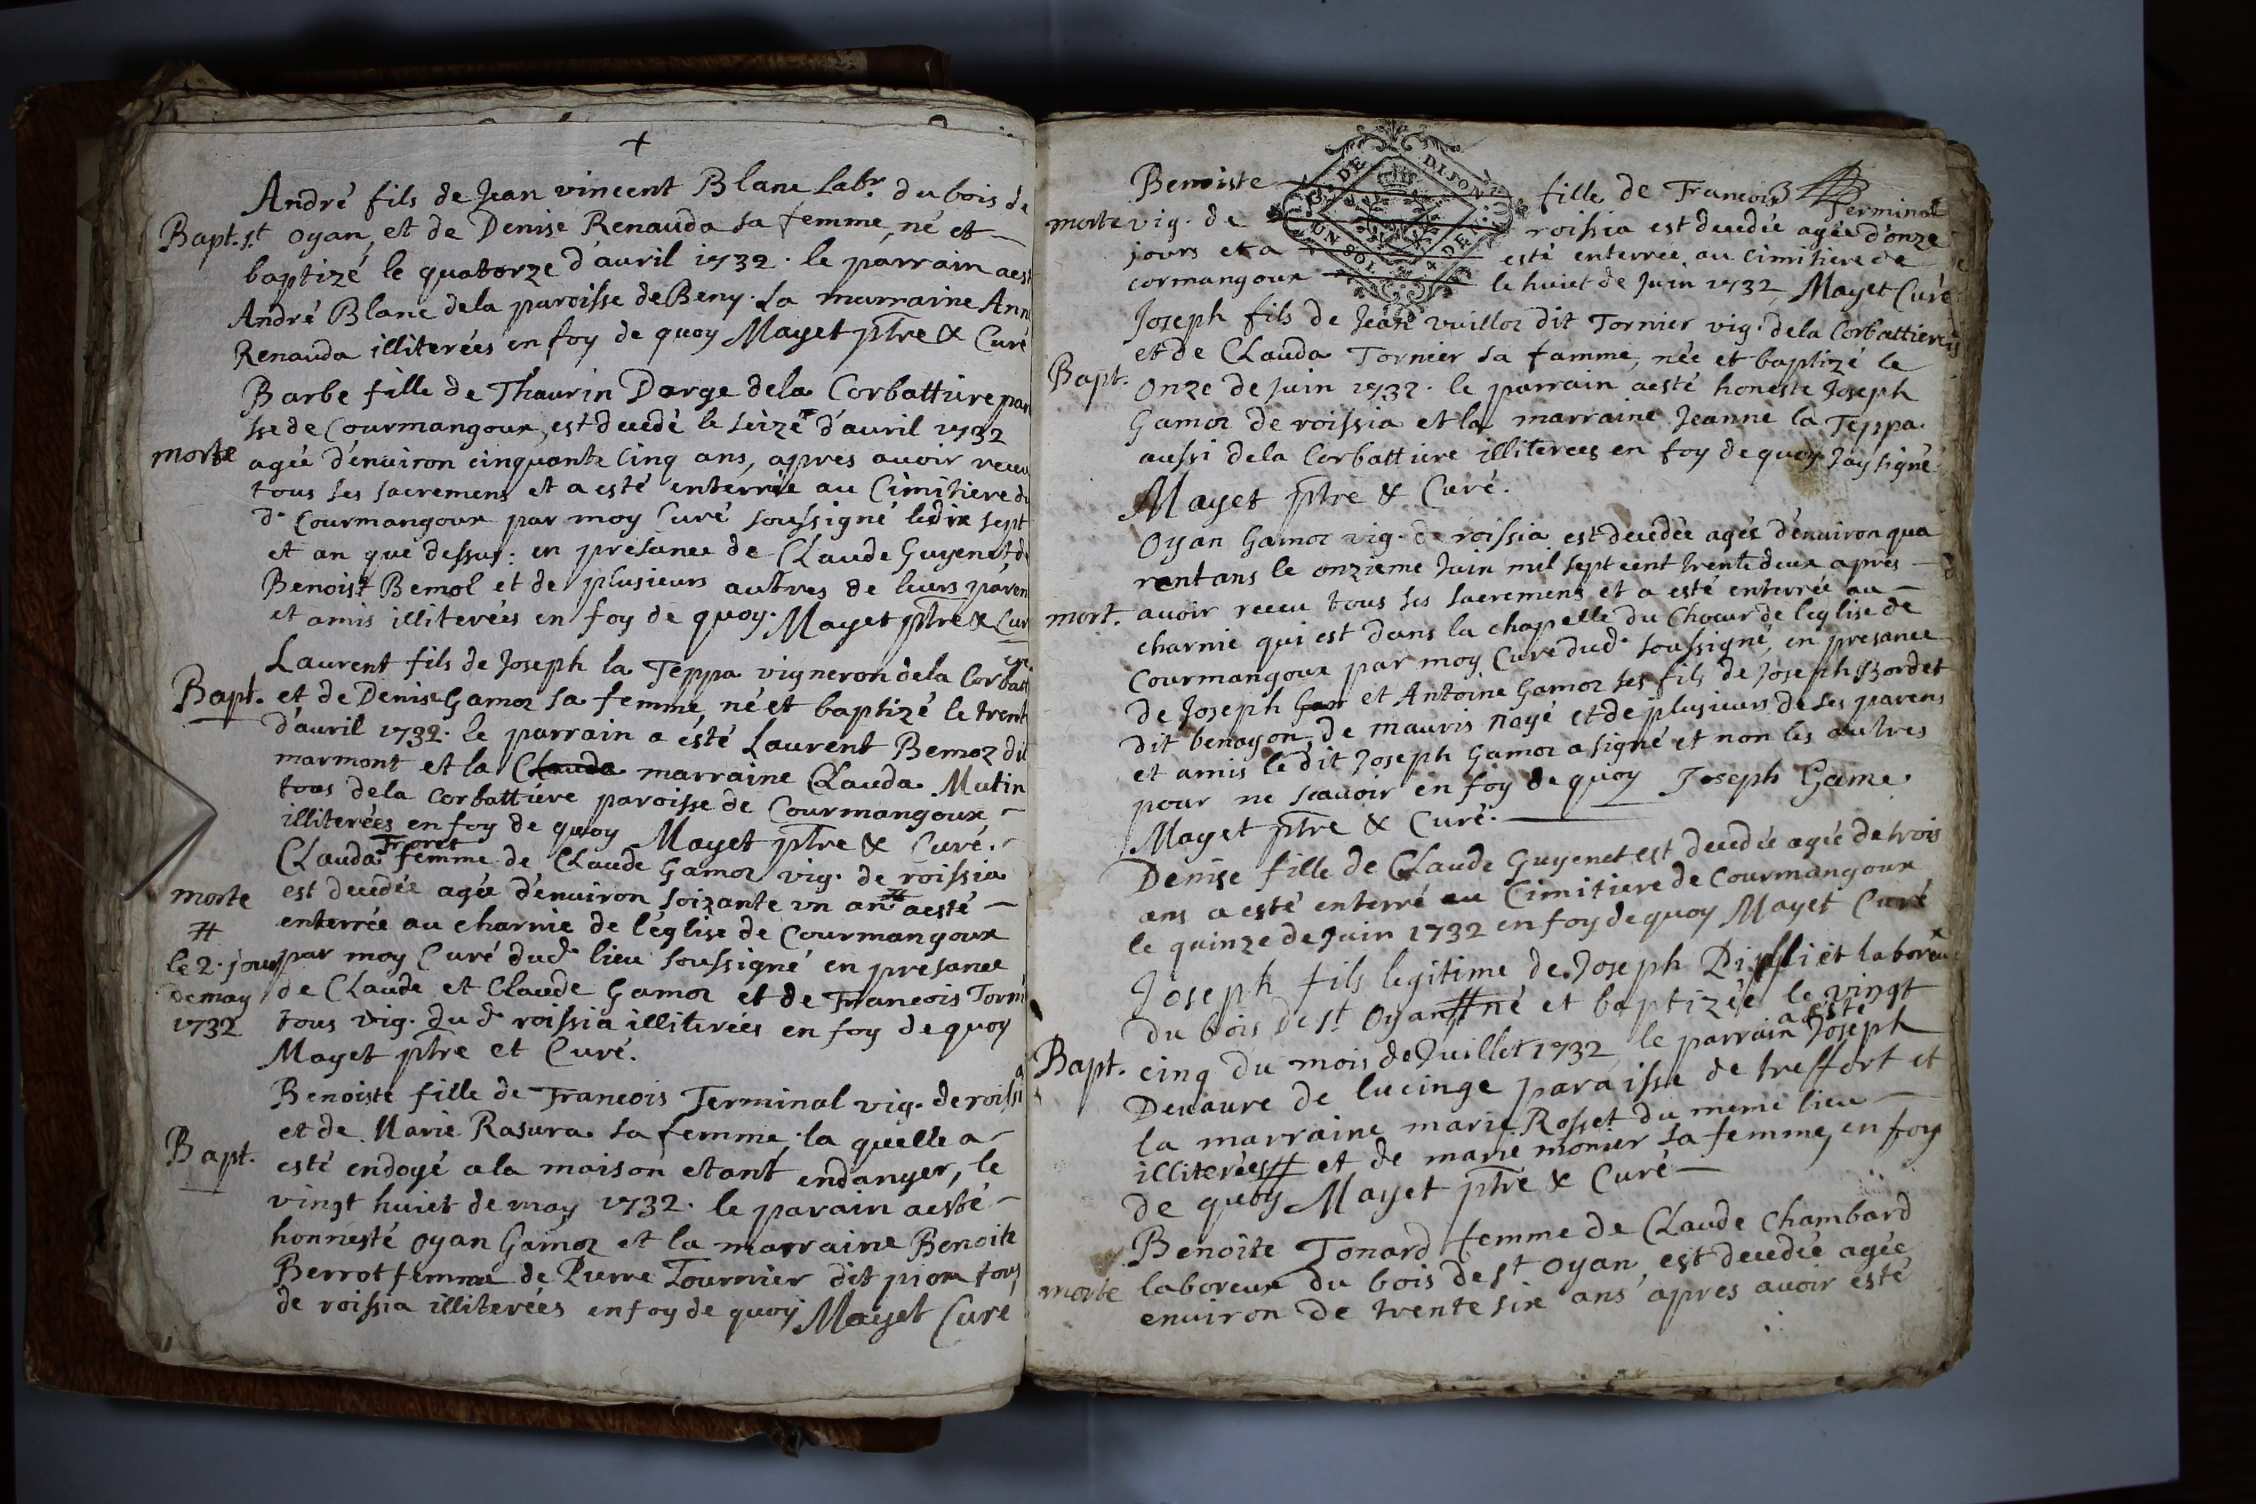 +
André fils de Jean vincent Blanc Labr. du bois de
Bapt. st oyan, et de Denise Renauda sa femme, né et
baptizé le quatorze d'auril 1732. le parrain a est
André Blanc dela paroisse de Beny. La marraine Ann
Renauda illiterées en foy de quoy Mayet ptre & Curé
Barbe fille de Thaurin Darge dela Corbattiere par
sse de Courmangoux, est decedé le seize d'auril 1732
morte agée d'enuiron cinquante Cinq ans, apres auoir receu
tous ses sacremens et a esté enterrée au Cimitiere du
d. Courmangoux par moy Curé soussigné le dix sept
et an que dessus: en presance de Claude Guyenet de
Benoist Bemol et de plusieurs autres de leurs paren
et amis illiterées en foy de quoy. Mayet ptre & Cur
Laurent fils de Joseph la Teppa vigneron dela Corbatt
Bapt. et de Denise Gamoz sa femme, né et baptizé le trent
d'auril 1732. le parrain a ésté Laurent Bemoz du
marmont et la Clauda marraine Clauda Mutin
tous dela Corbattiere paroisse de Courmangoux
illiterées en foy de quoy Mayet ptre & Curé.
Clauda femme de Claude Gamoz vig. de roissia
morte est decedée agée d'enuiron soizante vn an # a esté
# enterrée au charnie de l'église de Courmangoux
le 2. jour par moy Curé dud. lieu soussigné en presance
de may de Claude et Claude Gamoz et de Francois Torni
1732 tous vig. du d. roissia illiterées en foy de quoy
Mayet ptre et Curé.
Benoiste fille de Francois Terminal vig. de roissia
et de Marie Rasura sa femme, la quelle a
Bapt. esté endoyé a la maison etant endanger, le
vingt huict de may 1732. le parain a esté
honnesté oyan Gamoz et la marraine Benoite
Berrot femme de Pierre Tournier dit pion tous
de roissia illiterées en foy de quoy Mayet Curé
G. DE DIJON
UN SOL 4 DEN.
Benoiste fille de Francois Terminal
morte vig. de roissia est decedée agée d'onze
jours et a esté enterrée au Cimitiere de
cormangoux le huict de Juin 1732, Mayet Curé
Joseph fils de Jean vuilloz dit Tornier vig. dela Corbattiere
et de Clauda Tornier sa famme, née et baptizé le
Bapt. onze de juin 1732. le parrain a esté honeste Joseph
Gamoz de roissia et la marraine Jeanne la Teppa
aussi dela Corbattiere illiterees en foy de quoy Jay signé
Mayet ptre & Curé.
Oyan Gamoz vig. de roissia est decedée agée d'enuiron qua
rant ans le onzieme Juin mil sept cent trente deux apres
mort. auoir receu tous ses sacremens et a esté enterrée au
charnie qui est dans la chapelle du Chœur de l'eglise de
Courmangoux par moy Curé dud. soussigné, en presance
de Joseph Gam et Antoine Gamoz ses fils de Joseph Bordet
dit benayon de mauris nayé et de plusieurs de ses parens
et amis le dit Joseph Gamoz a signé et non les autres
pour ne scauoir en foy de quoy Joseph Game.
Mayet ptre & Curé.
Denise fille de Claude Guyenet est decedée agée de trois
ans a esté enterré au Cimitiere de Courmangoux
le quinze de Juin 1732 en foy de quoy Mayet Curé
Joseph fils legitime de Joseph laboreux
du bois de st Oyan # né et baptizée le vingt
Bapt. cinq du mois de Juillet 1732 le parrain a esté Joseph
Deuaure de lucinge paraisse de treffort et
la marraine marie Rosset du meme lieu
illiterées # et de marie monier sa femme, en foy
de quoy Mayet ptre & Curé
Benoîte Tonard femme de Claude Chambard
morte laboreux du bois de st oyan, est decedée agée
enuiron de trente six ans apres auoir esté